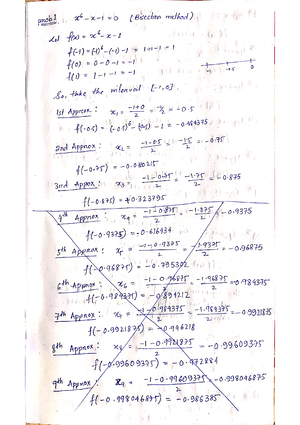 prob: x⁶-x-1=0 (Bisection method)
Let f(x) = x⁶-x-1
f(-1) = (-1)⁶-(-1)-1 = 1+1-1 = 1
f(0) = 0-0-1 = -1
f(1) = 1-1-1 = -1
So, take the interval [-1,0].
1st Approx: x₁ = -1+0/2 = -1/2 = -0.5
f(-0.5) = (-0.5)⁶-(-0.5)-1 = -0.484375
2nd Approx: x₂ = -1-0.5/2 = -1.5/2 = -0.75
f(-0.75) = -0.080215
3rd Appox: x₃ = -1-0.75/2 = -1.75/2 = -0.875
f(-0.875) = 0.323795
4th Appox: x₄ = -1-0.875/2 = -1.875/2 = -0.9375
f(-0.9375) = -0.616934
5th Approx: x₅ = -1-0.9375/2 = -1.9375/2 = -0.96875
f(-0.96875) = -0.795302
6th Approx: x₆ = -1-0.96875/2 = -1.96875/2 = -0.984375
f(-0.984375) = -0.894212
7th Approx: x₇ = -1-0.984375/2 = -1.984375/2 = -0.9921875
f(-0.9921875) = -0.946218
8th Approx: x₈ = -1-0.9921875/2 = -0.99609375
f(-0.99609375) = -0.972884
9th Approx: x₉ = -1-0.99609375/2 = -0.998046875
f(-0.998046875) = -0.986385